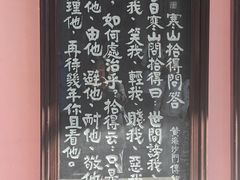 寒山拾得問答
昔日寒山問拾得曰世間謗我
我笑我輕我賤我惡我
如何處治乎拾得云只是
他由他避他耐他敬他
理他再待幾年你且看他